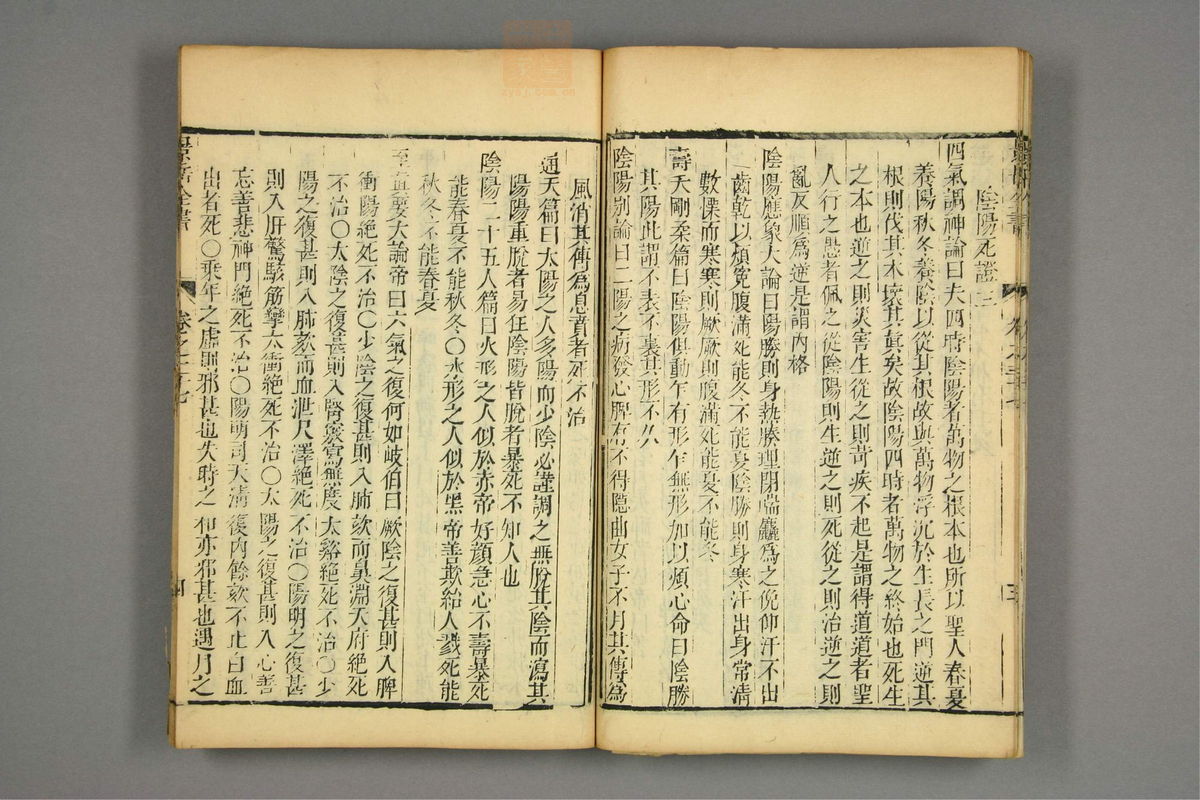 陰陽死證 三
四氣調神論曰夫四時陰陽者萬物之根本也所以聖人春夏
養陽秋冬養陰以從其根故與萬物浮沉於生長之門逆其
根則伐其本壞其眞矣故陰陽四時者萬物之終始也死生
之本也逆之則災害生從之則苛疾不起是謂得道道者聖
人行之愚者佩之從陰陽則生逆之則死從之則治逆之則
亂反順爲逆是謂內格
陰陽應象大論曰陽勝則身熱腠理閉喘麤爲之俛仰汗不出
齒乾以煩寃腹滿死能冬不能夏陰勝則身寒汗出身常清
數慄而寒寒則厥厥則腹滿死能夏不能冬
壽夭剛柔篇曰陰陽俱動乍有形乍無形加以煩心命曰陰勝
其陽此謂不表不裏其形不久
陰陽别論曰二陽之病發心脾有不得隱曲女子不月其傳爲
風消其傳爲息賁者死不治
通天篇曰太陽之人多陽而少陰必謹調之無脫其陰而瀉其
陽陽重脫者易狂陰陽皆脫者暴死不知人也
陰陽二十五人篇曰火形之人似於赤帝好顔急心不壽暴死
能春夏不能秋冬〇水形之人似於黑帝善欺紿人戮死能
秋冬不能春夏
至眞要大論帝曰六氣之復何如岐伯曰厥陰之復甚則入脾
衝陽絶死不治〇少陰之復甚則入肺欬而鼻淵天府絶死
不治〇太陰之復甚則入腎竅寫無度太谿絶死不治〇少
陽之復甚則入肺欬而血泄尺澤絶死不治〇陽明之復甚
則入肝驚駭筋攣太衝絶死不治〇太陽之復甚則入心善
忘善悲神門絶死不治〇陽明司天清復內餘欬不止白血
出者死〇乘年之虛則邪甚也失時之和亦邪甚也遇月之
景岳全書
卷之七
四
三